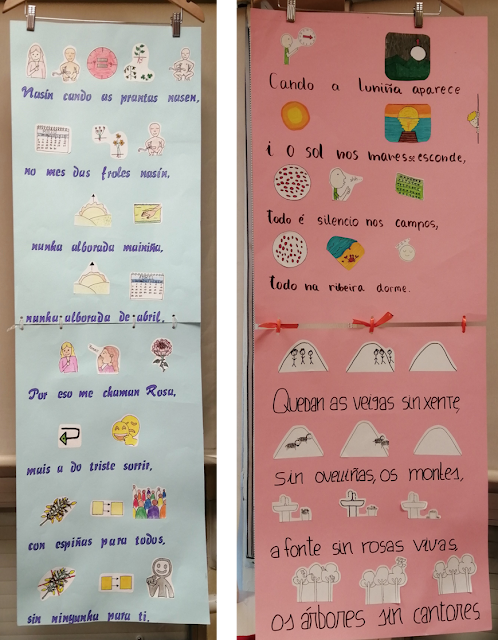 Nasín cando as prantas nasen,
no mes das froles nasín,
nunha alborada mainiña,
nunha alborada de abril.
Por eso me chaman Rosa,
mais a do triste sorrir,
con espiñas para todos,
sin ningunha para ti.
Cando a luniña aparece
i o sol nos mares se esconde,
todo é silencio nos campos,
todo na ribeira dorme.
Quedan as veigas sin xente,
sin ovelliñas, os montes,
a fonte sin rosas vivas,
os árbores sin cantores